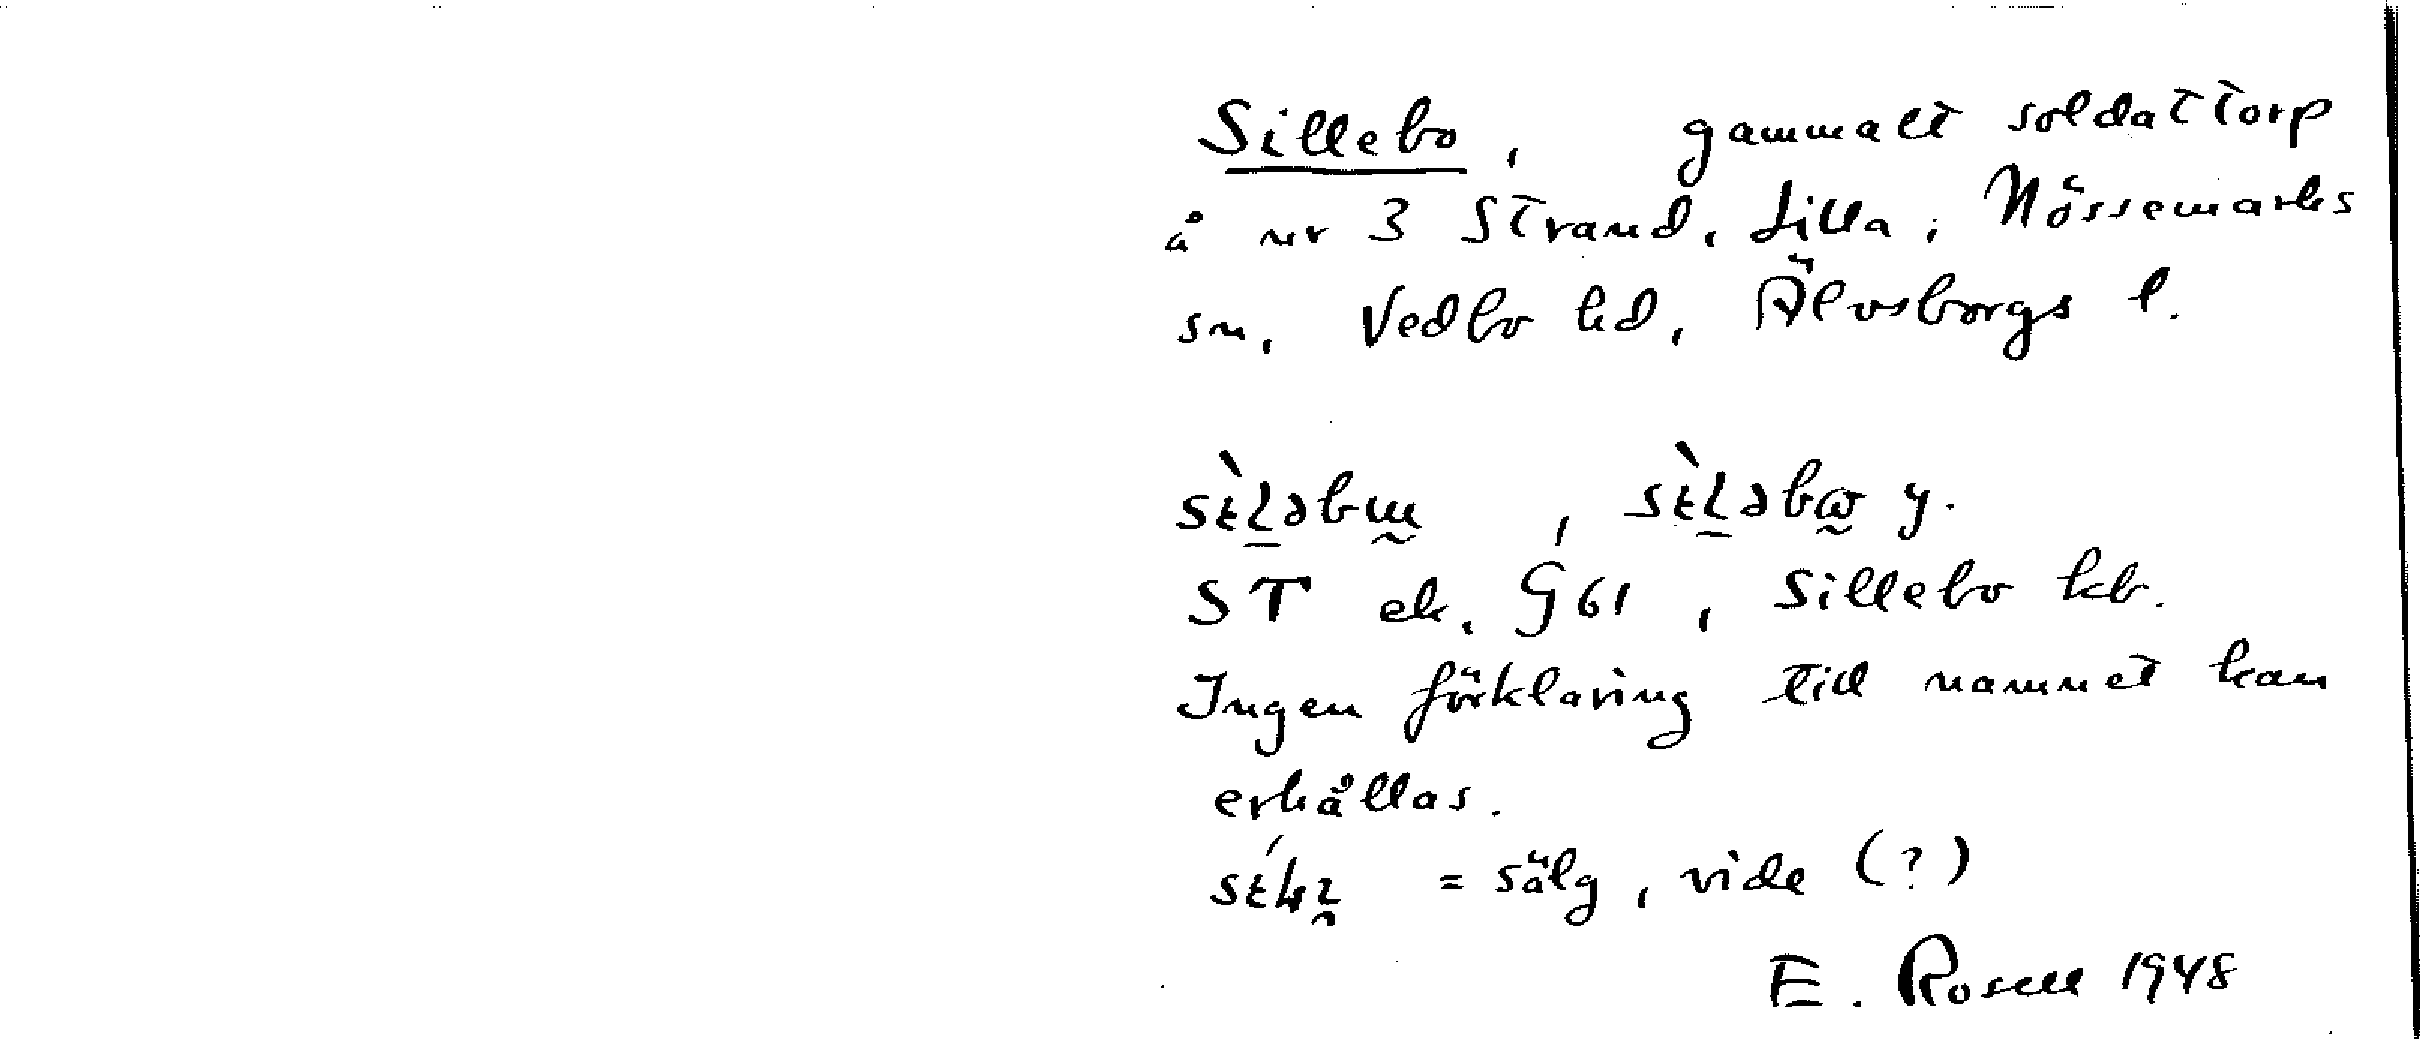 Sillebo, gammalt soldattorp
å nr 3 Strand, Lilla, Nössemarks
sn, Vedbo hd, Älvsborgs l.
y.
ST ek. G61, Sillebo kb.
Ingen förklaring till namnet kan
erhållas.
= sälg, vide (?)
E. Rosell 1948